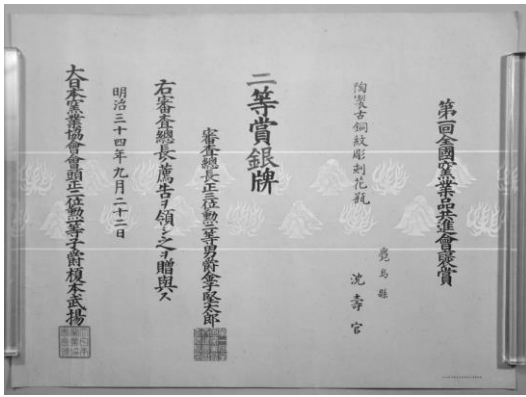 第一回全國窯業品共進會褒賞
鹿兒島縣
沈壽官
陶製古銅紋彫刻花瓶
二等賞銀牌
審査總長正三位勲一等男爵金子堅太郎
右審査總長ノ薦告ヲ領シ之ヲ贈與ス
明治三十四年九月二十二日
大日本窯業協會會頭正二位勲一等子爵榎本武揚